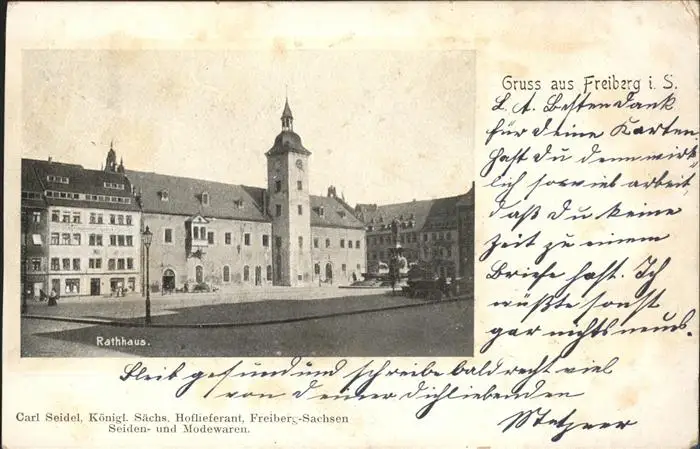 Gruss aus Freiberg i. S.
L. A. Besten Dank
für deine Karten,
hast du denn wirk-
lich so viel arbeit
daß du keine
zeit zu einem
Briefe hast. Ich
wüßte sonst
gar nichts neues.
Bleib gesund und schreibe bald recht viel
von deiner dichliebenden
Rathhaus.
Carl Seidel, Königl. Sächs. Hoflieferant, Freiberg-Sachsen
Seiden- und Modewaren.